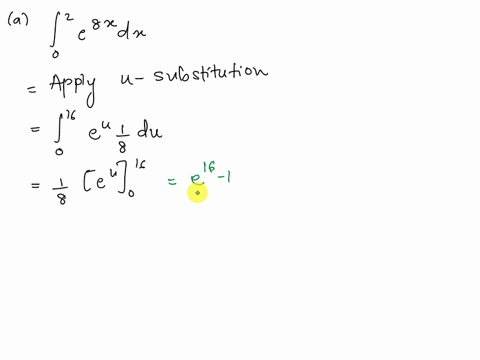 (a) ∫₀² e^{8x} dx
= Apply u-substitution
= ∫₀¹⁶ e^u 1/8 du
= 1/8 [e^u]₀¹⁶ = e^{16} - 1